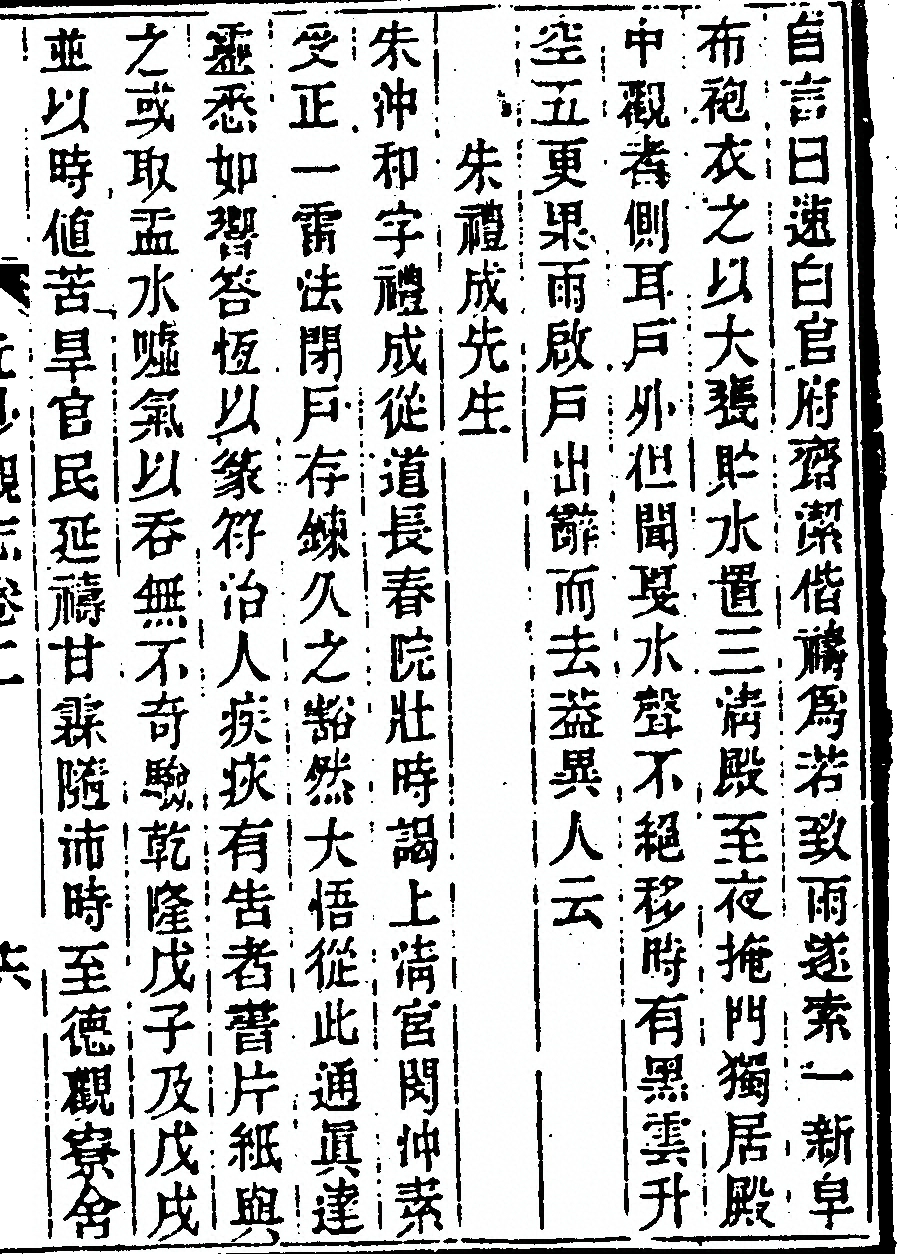 自言曰速白官府齋潔偕禱爲若致雨遂索一新皁
布袍衣之以大甕貯水置三淸殿至夜掩門獨居殿
中觀者側耳戶外但聞戛水聲不絕移時有黑雲升
空五更果雨啟戶出辭而去葢異人云
朱禮成先生
朱沖和字禮成從道長春院壯時謁上淸宮閔仲素
受正一雷法閉戶存鍊久之豁然大悟從此通眞達
靈悉如響答恆以篆符治人疾疢有告者書片紙與
之或取盂水噓氣以吞無不奇驗乾隆戊子及戊戌
並以時値苦旱官民延禱甘霖隨沛時至德觀寮舍
觀志卷二